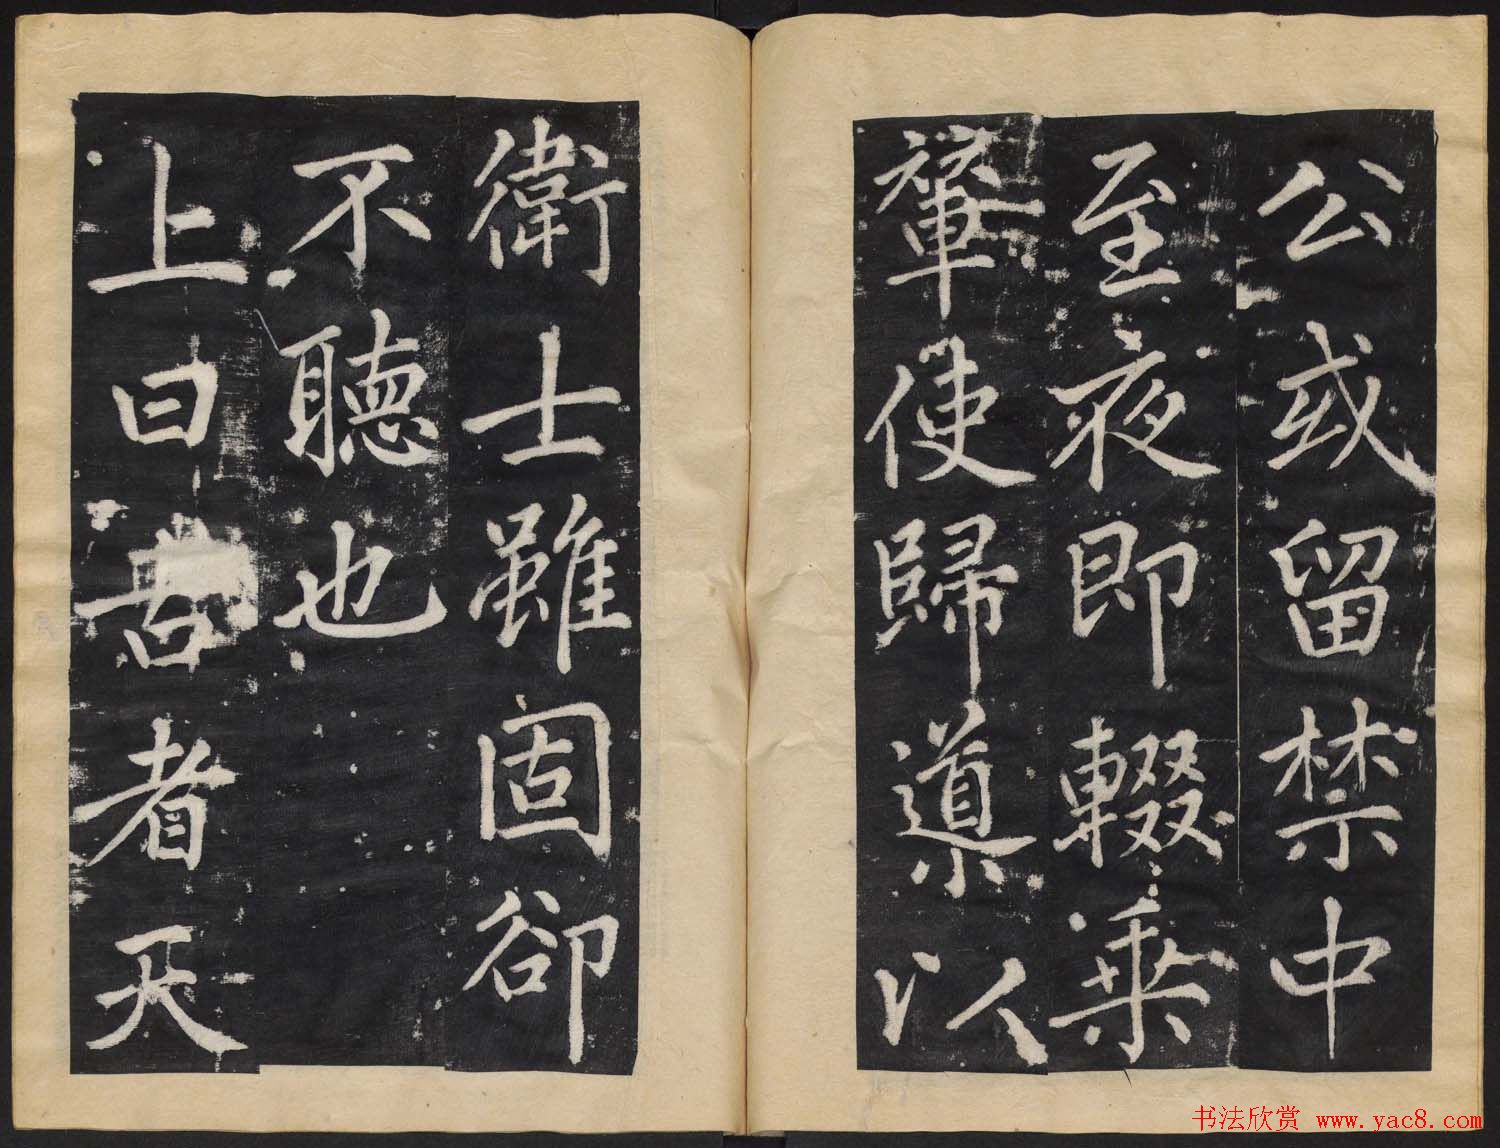 公或留禁中
至夜即輟乘
輦使歸導以
衛士雖固卻
不聽也
上曰昔者天
书法欣赏 www.yac8.com